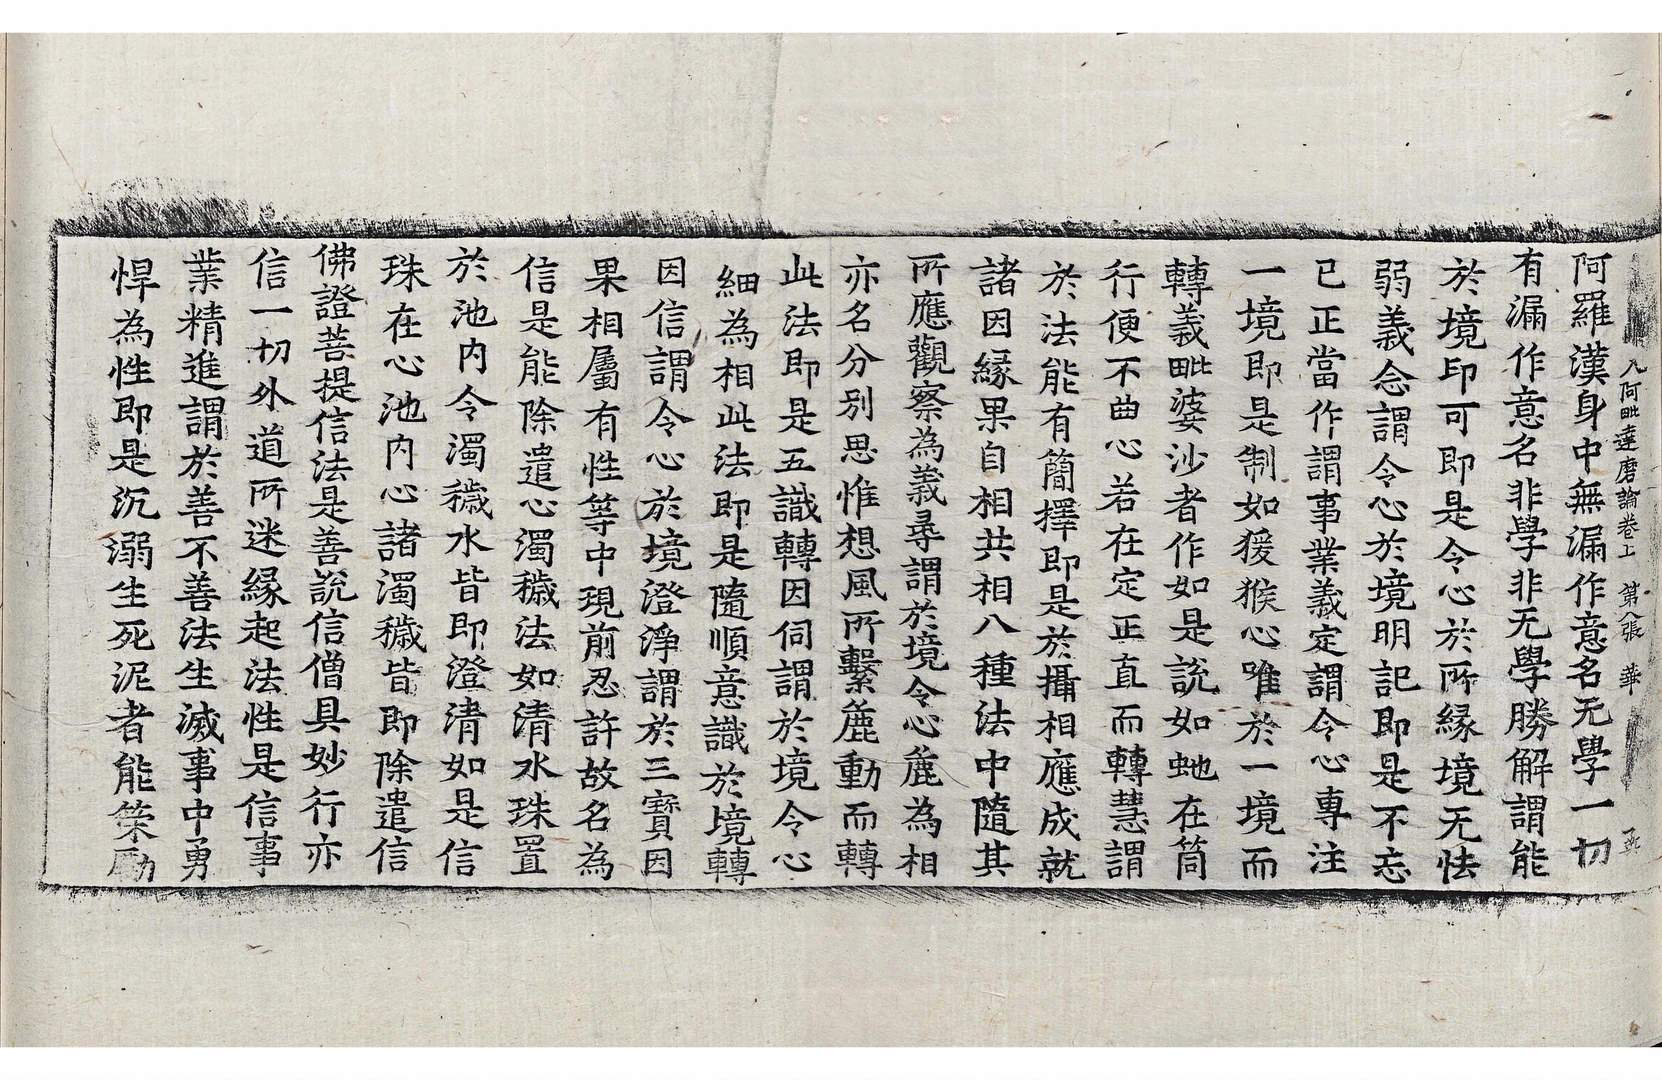 入阿毗達磨論卷上 第八張 華
阿羅漢身中無漏作意名无學一切
有漏作意名非學非无學勝解謂能
於境印可即是令心於所緣境无怯
弱義念謂令心於境明記即是不忘
已正當作謂事業義定謂令心專注
一境即是制如猨猴心唯於一境而
轉義毗婆沙者作如是說如虵在筒
行便不曲心若在定正直而轉慧謂
於法能有簡擇即是於攝相應成就
諸因緣果自相共相八種法中隨其
所應觀察為義尋謂於境令心麁為相
亦名分別思惟想風所繫麁動而轉
此法即是五識轉因伺謂於境令心
細為相此法即是隨順意識於境轉
因信謂令心於境澄淨謂於三寶因
果相屬有性等中現前忍許故名為
信是能除遣心濁穢法如清水珠置
於池內令濁穢水皆即澄清如是信
珠在心池內心諸濁穢皆即除遣信
佛證菩提信法是善說信僧具妙行亦
信一切外道所迷緣起法性是信事
業精進謂於善不善法生滅事中勇
悍為性即是沉溺生死泥者能策勵